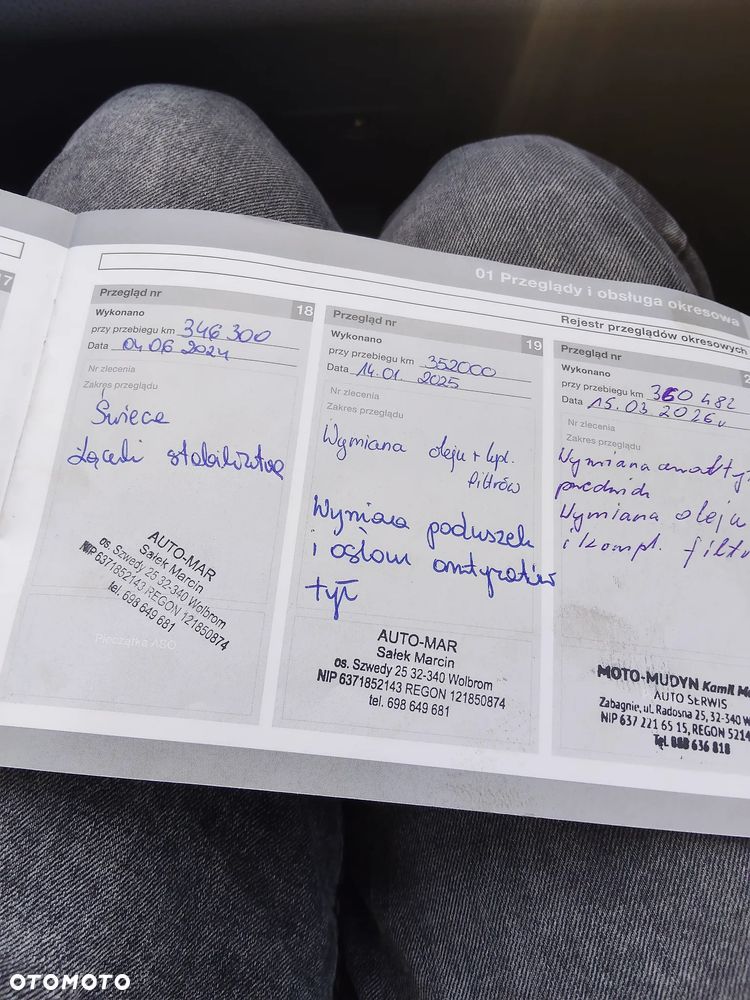 7
01 Przeglądy i obsługa okresowa
Rejestr przeglądów okresowych
Przegląd nr 18
Wykonano
przy przebiegu km 346 300
Data 04 06 2024
Nr zlecenia
Zakres przeglądu
Świece
Łączniki stabilizatora
AUTO-MAR
Sałek Marcin
os. Szwedy 25 32-340 Wolbrom
NIP 6371852143 REGON 121850874
tel. 698 649 681
Pieczątka ASO
Przegląd nr 19
Wykonano
przy przebiegu km 352000
Data 14.01. 2025
Nr zlecenia
Zakres przeglądu
Wymiana oleju + kpl.
filtrów
Wymiana poduszek
i osłon amortyzatorów
tył
AUTO-MAR
Sałek Marcin
os. Szwedy 25 32-340 Wolbrom
NIP 6371852143 REGON 121850874
tel. 698 649 681
Przegląd nr 2
Wykonano
przy przebiegu km 360 482
Data 15.03.2026r
Nr zlecenia
Zakres przeglądu
Wymiana
przednich
Wymiana oleju
i kompl. filtr
MOTO-MUDYN Kamil
AUTO SERWIS
Zabagnie, ul. Radosna 25, 32-340 W
NIP 637 221 65 15, REGON 5214
Tel. 888 636 818
OTOMOTO